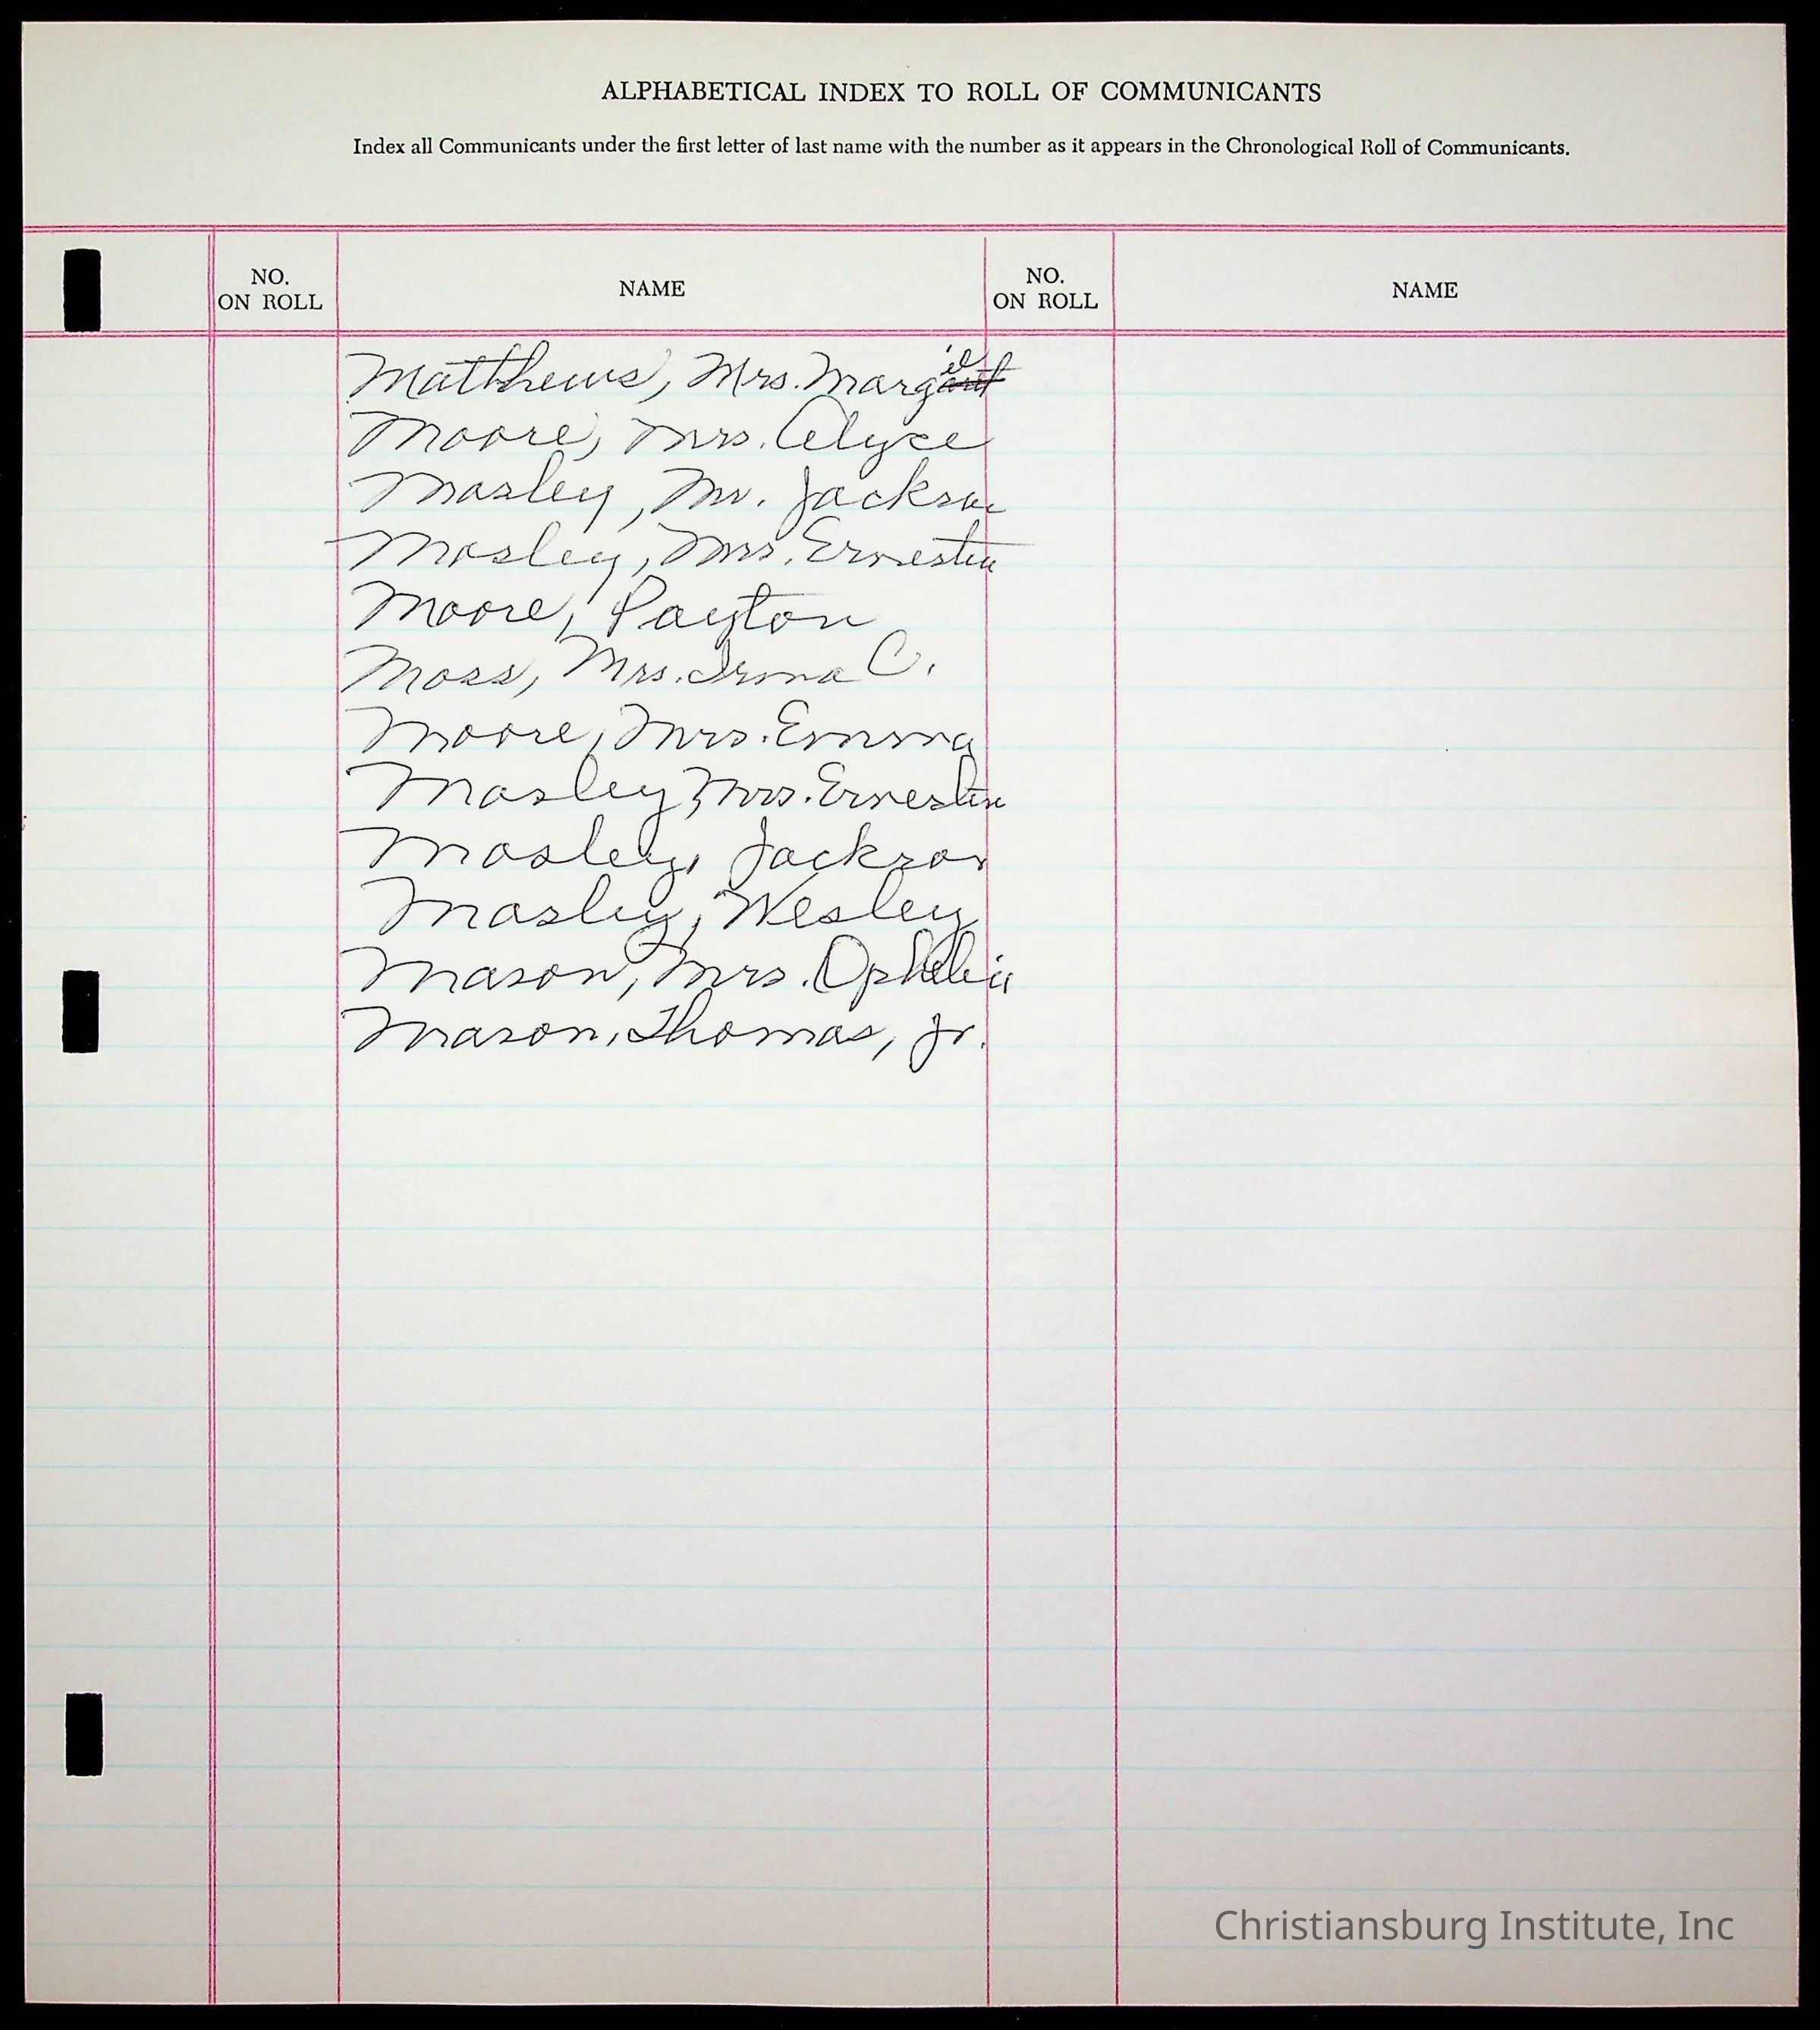 ALPHABETICAL INDEX TO ROLL OF COMMUNICANTS
Index all Communicants under the first letter of last name with the number as it appears in the Chronological Roll of Communicants.
NO. ON ROLL NAME NO. ON ROLL NAME
Matthews, Mrs. Margie
Moore, Mrs. Alyce
Mosley, Mr. Jackson
Mosley, Mrs. Ernestine
Moore, Payton
Moss, Mrs. Irma C.
Moore, Mrs. Emma
Mosley, Mrs. Ernestine
Mosley, Jackson
Mosley, Wesley
Mason, Mrs. Ophelia
Mason, Thomas, Jr.
Christiansburg Institute, Inc